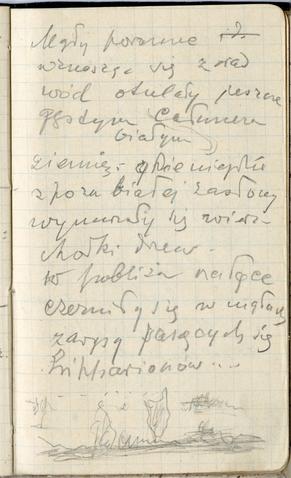 Mgły poranne
wznosząc się znad
wód otulały jeszcze
gęstym całunem
białym
ziemię. gdzieniegdzie
spoza białej zasłony
wynurzały się wierz
chołki drzew.
w pobliżu na łące
czerniły się w mgłach
zarysy pasących się
hipparionów...